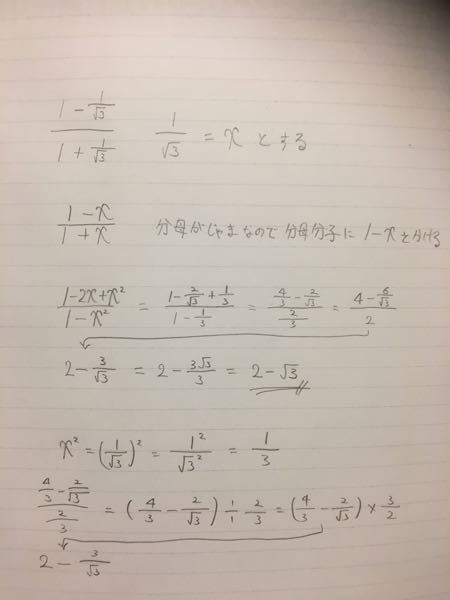 (1 - 1/√3)/(1 + 1/√3)　1/√3 = x とする
(1-x)/(1+x)　分母がじゃまなので分母分子に 1-x をかける
(1-2x+x²)/(1-x²) = (1 - 2/√3 + 1/3)/(1 - 1/3) = (4/3 - 2/√3)/(2/3) = (4 - 6/√3)/2
2 - 3/√3 = 2 - 3√3/3 = 2 - √3
x² = (1/√3)² = 1²/√3² = 1/3
(4/3 - 2/√3)/(2/3) = (4/3 - 2/√3) ÷ 2/3 = (4/3 - 2/√3) × 3/2
2 - 3/√3